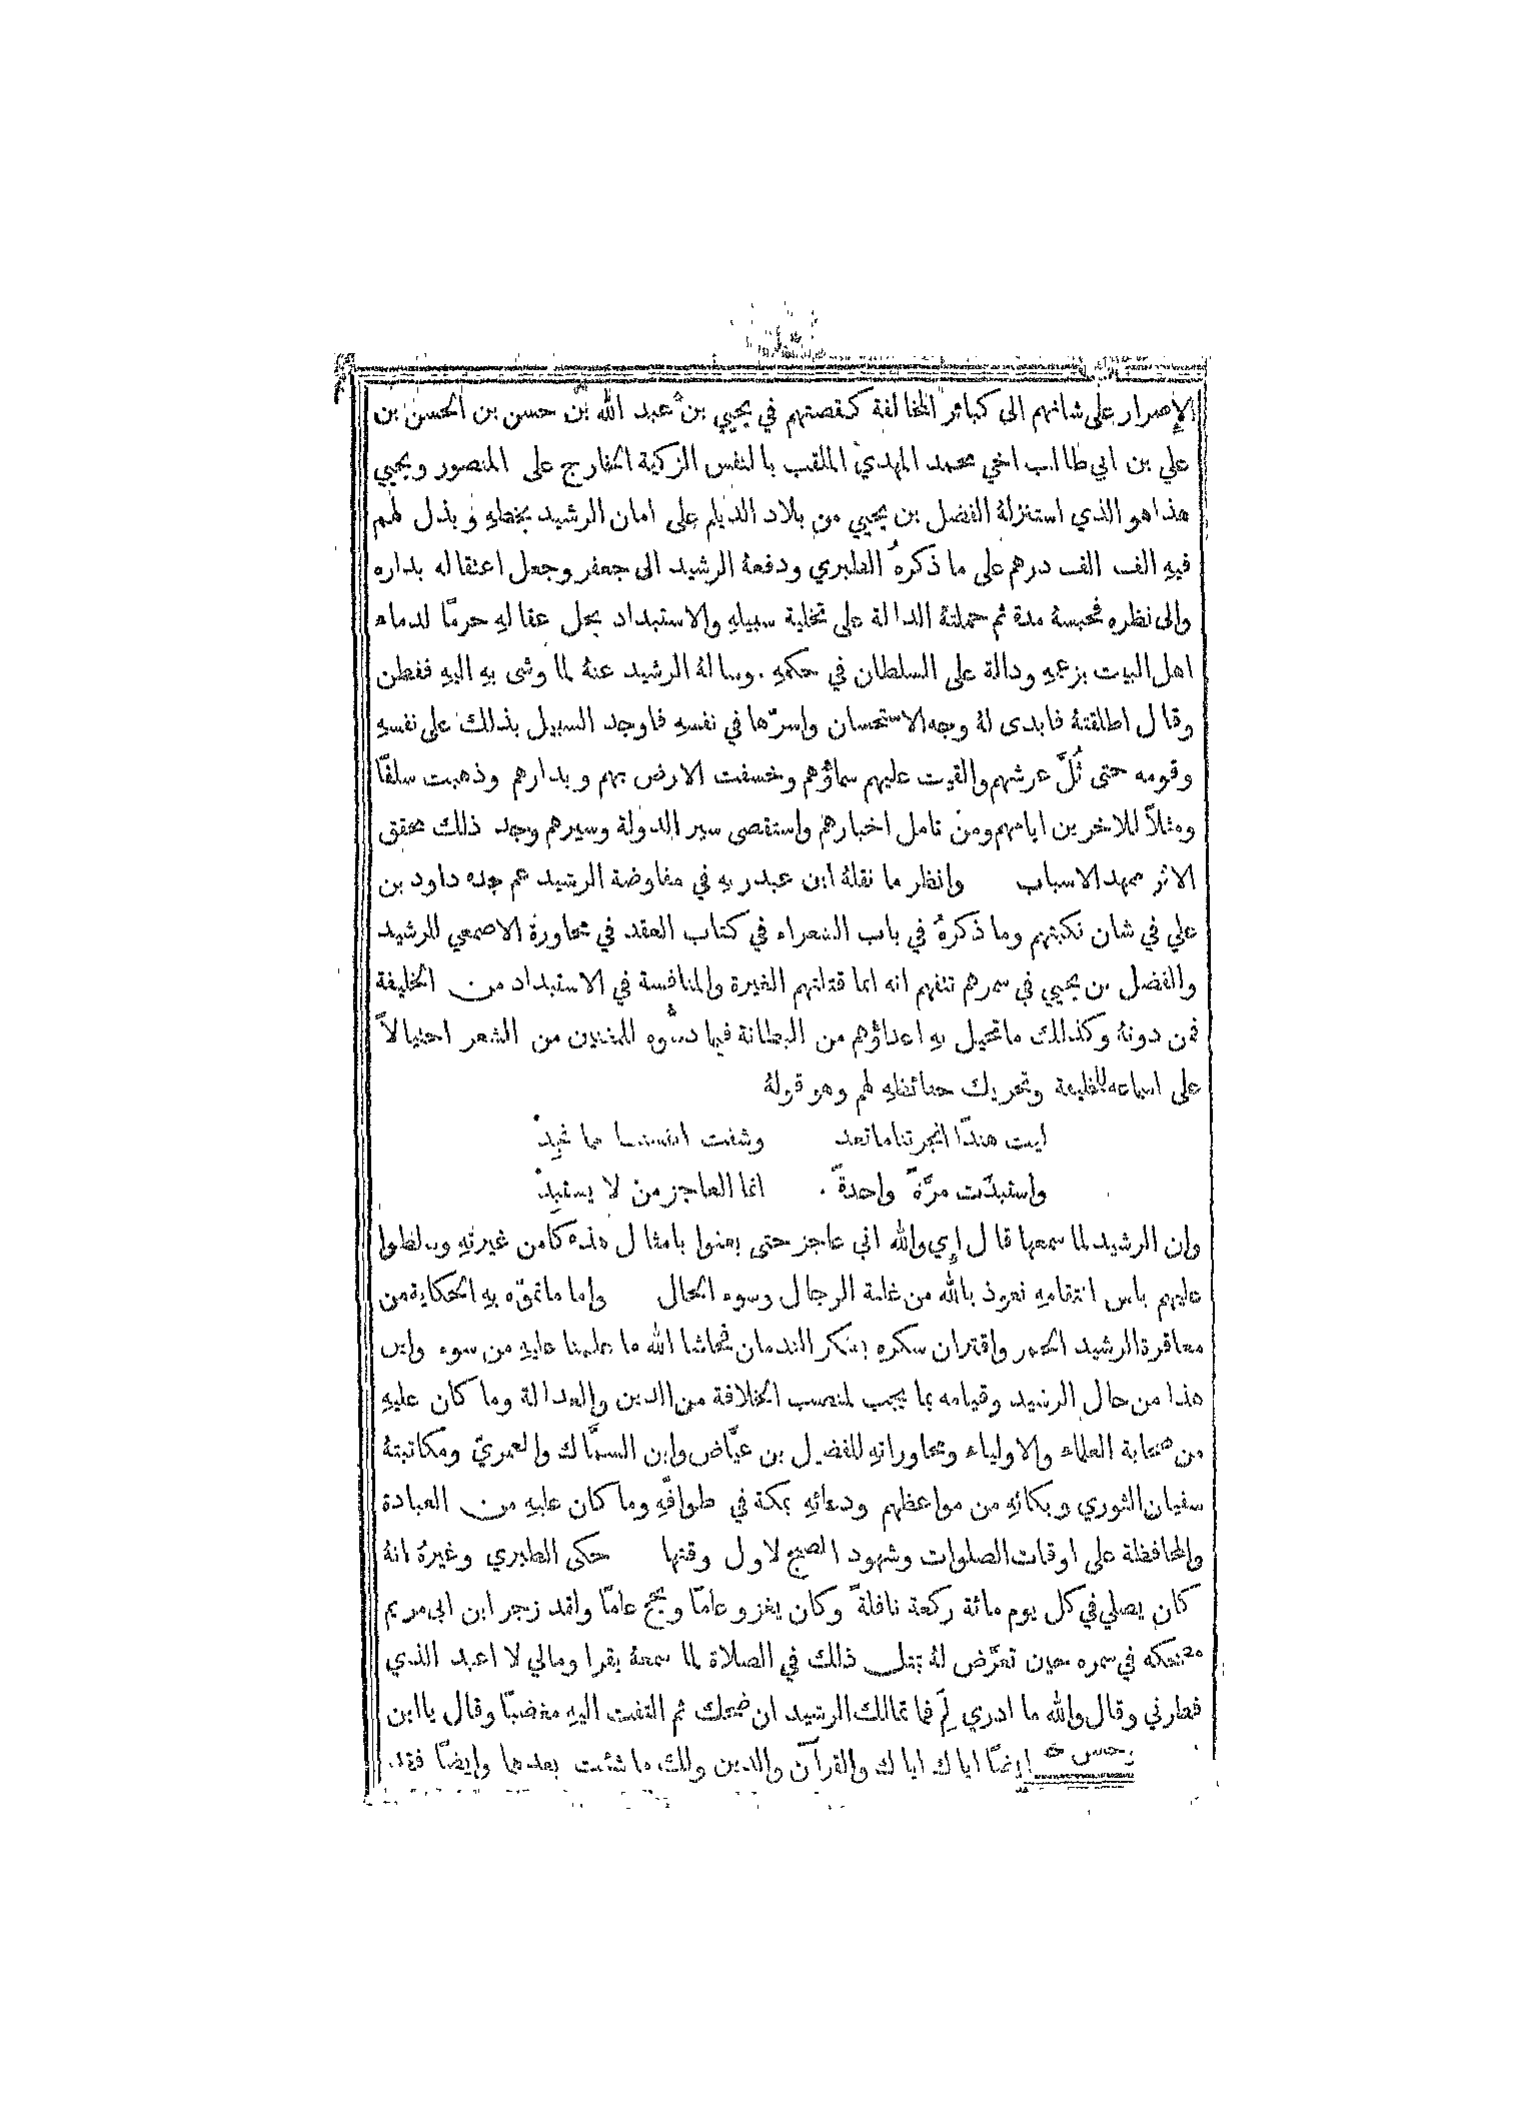 الإصرار على شانهم الى كبائر المخالفة كقصتهم في يحيي بن عبد الله بن حسن بن الحسن بن
علي بن ابي طالب اخي محمد المهدي الملقب بالنفس الزكية الخارج على المنصور ويحيي
هذا هو الذي استنزلهُ الفضل بن يحيي من بلاد الديلم على امان الرشيد بخطهِ وبذل لهم
فيهِ الف الف درهم على ما ذكرهُ الطبري ودفعهُ الرشيد الى جعفر وجعل اعتقاله بداره
والى نظره فحبسهُ مدة ثم حملتهُ الدالة على تخلية سبيلهِ والاستبداد بحل عقالهِ حرمًا لدماء
اهل البيت بزعمهِ ودالة على السلطان في حكمهِ . وسالهُ الرشيد عنهُ لما وشى بهِ اليهِ ففطن
وقال اطلقتهُ فابدى لهُ وجه الاستحسان واسرّها في نفسهِ فاوجد السبيل بذلك على نفسهِ
وقومه حتى ثُلَّ عرشهم والقيت عليهم سماؤهم وخسفت الارض بهم وبدارهم وذهبت سلفًا
ومثلاً للاخرين ايامهم ومن تامل اخبارهم واستقصى سير الدولة وسيرهم وجد ذلك محقق
الاثر ممهد الاسباب وانظر ما نقلهُ ابن عبدربهِ في مفاوضة الرشيد عم جده داود بن
علي في شان نكبتهم وما ذكرهُ في باب الشعراء في كتاب العقد في محاورة الاصمعي للرشيد
والفضل بن يحيي في سمرهم تتفهم انه انما قتلتهم الغيرة والمنافسة في الاستبداد من الخليفة
فمن دونهُ وكذلك ما تحيل بهِ اعداؤهم من البطانة فيما دسُّوه للمغنين من الشعر احتيالاً
على اسماعه للخليفة وتحريك حفائظهِ لهم وهو قولهُ
ليت هندًا انجزتنا ما تعد وشفت انفسنا مما نجِدْ
واستبدّت مرَّةً واحدةً . انما العاجز من لا يستبِدْ
وان الرشيد لما سمعها قال إي والله اني عاجز حتى بعثوا بامثال هذه كامن غيرتهِ وسلطوا
عليهم باس انتقامهِ نعوذ بالله من غلبة الرجال وسوء الحال واما ما تموّه بهِ الحكاية من
معاقرة الرشيد الخمر واقتران سكره بسكر الندمان فحاشا الله ما علمنا عليهِ من سوء واين
هذا من حال الرشيد وقيامه بما يجب لمنصب الخلافة من الدين والعدالة وما كان عليهِ
من صحابة العلماء والاولياء ومحاوراتهِ للفضيل بن عيَّاض وابن السمَّاك والعمريّ ومكاتبتهُ
سفيان الثوري وبكائهِ من مواعظهم ودعائهِ بمكة في طوافهِ وما كان عليهِ من العبادة
والمحافظة على اوقات الصلوات وشهود الصبح لاول وقتها حكى الطبري وغيرهُ انهُ
كان يصلي في كل يوم مائة ركعة نافلةً وكان يغزو عامًا ويحج عامًا ولقد زجر ابن ابي مريم
مضحكه في سمره حين تعرَّض لهُ بمثل ذلك في الصلاة لما سمعهُ يقرا وما لي لا اعبد الذي
فطرني وقال والله ما ادري لِمَ فما تمالك الرشيد ان ضحك ثم التفت اليهِ مغضبًا وقال يا ابن
ايضًا اياك اياك والقرآن والدين ولك ما شئت بعدها وايضًا فقد